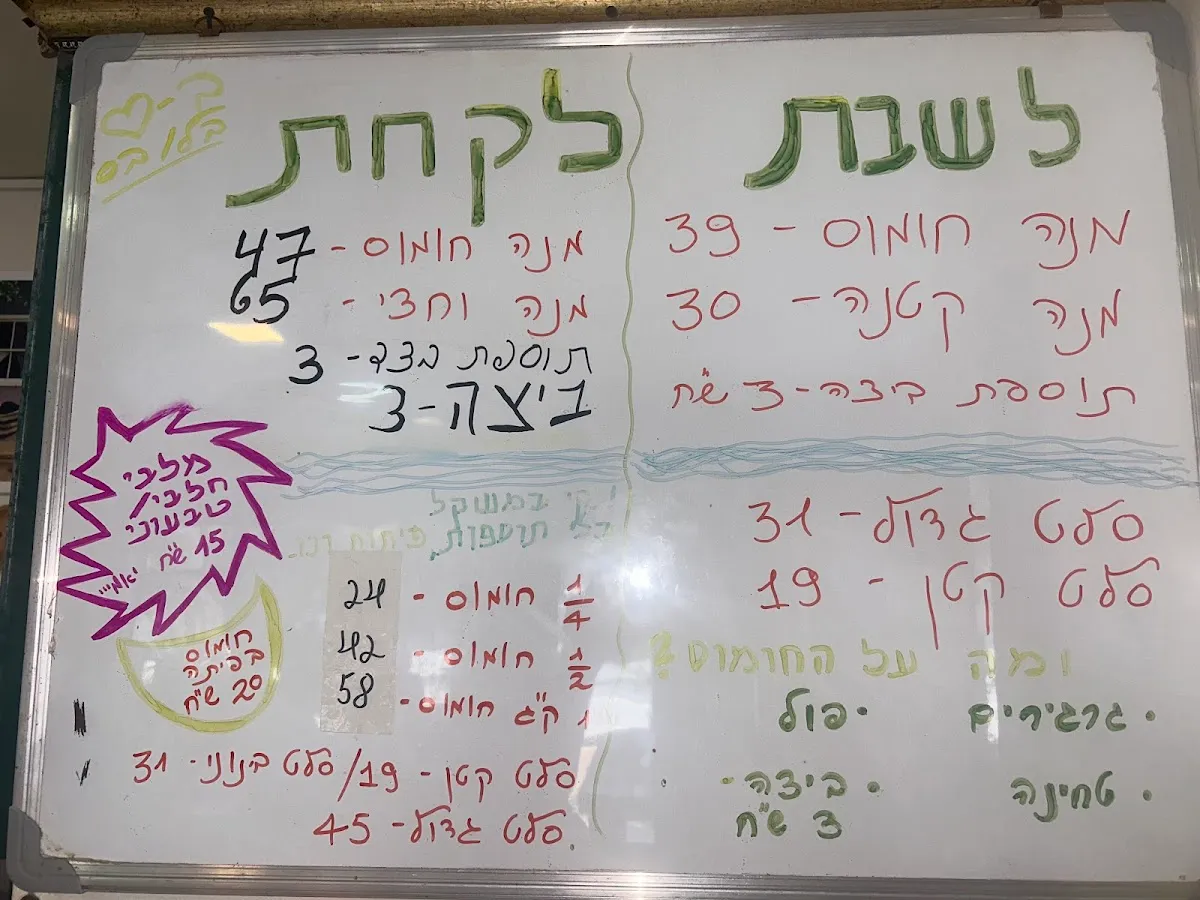 לשבת
מנה חומוס - 39
מנה קטנה - 30
תוספת ביצה - 3 ש"ח
סלט גדול - 31
סלט קטן - 19
ומה על החומוס?
• גרגירים • פול
• טחינה • ביצה -
3 ש"ח
לקחת
ב-♡
בלו בס
מנה חומוס - 47
מנה וחצי - 65
תוספת בצד - 3
ביצה - 3
במשקל
תוספות, פיתות וכו..
1/4 חומוס - 24
1/2 חומוס - 42
1 ק"ג חומוס - 58
סלט קטן - 19/סלט בנוני - 31
סלט גדול - 45
מלבי
חלבי/
טבעוני
15 ש"ח
יאמי...
חומוס
בפיתה
20 ש"ח